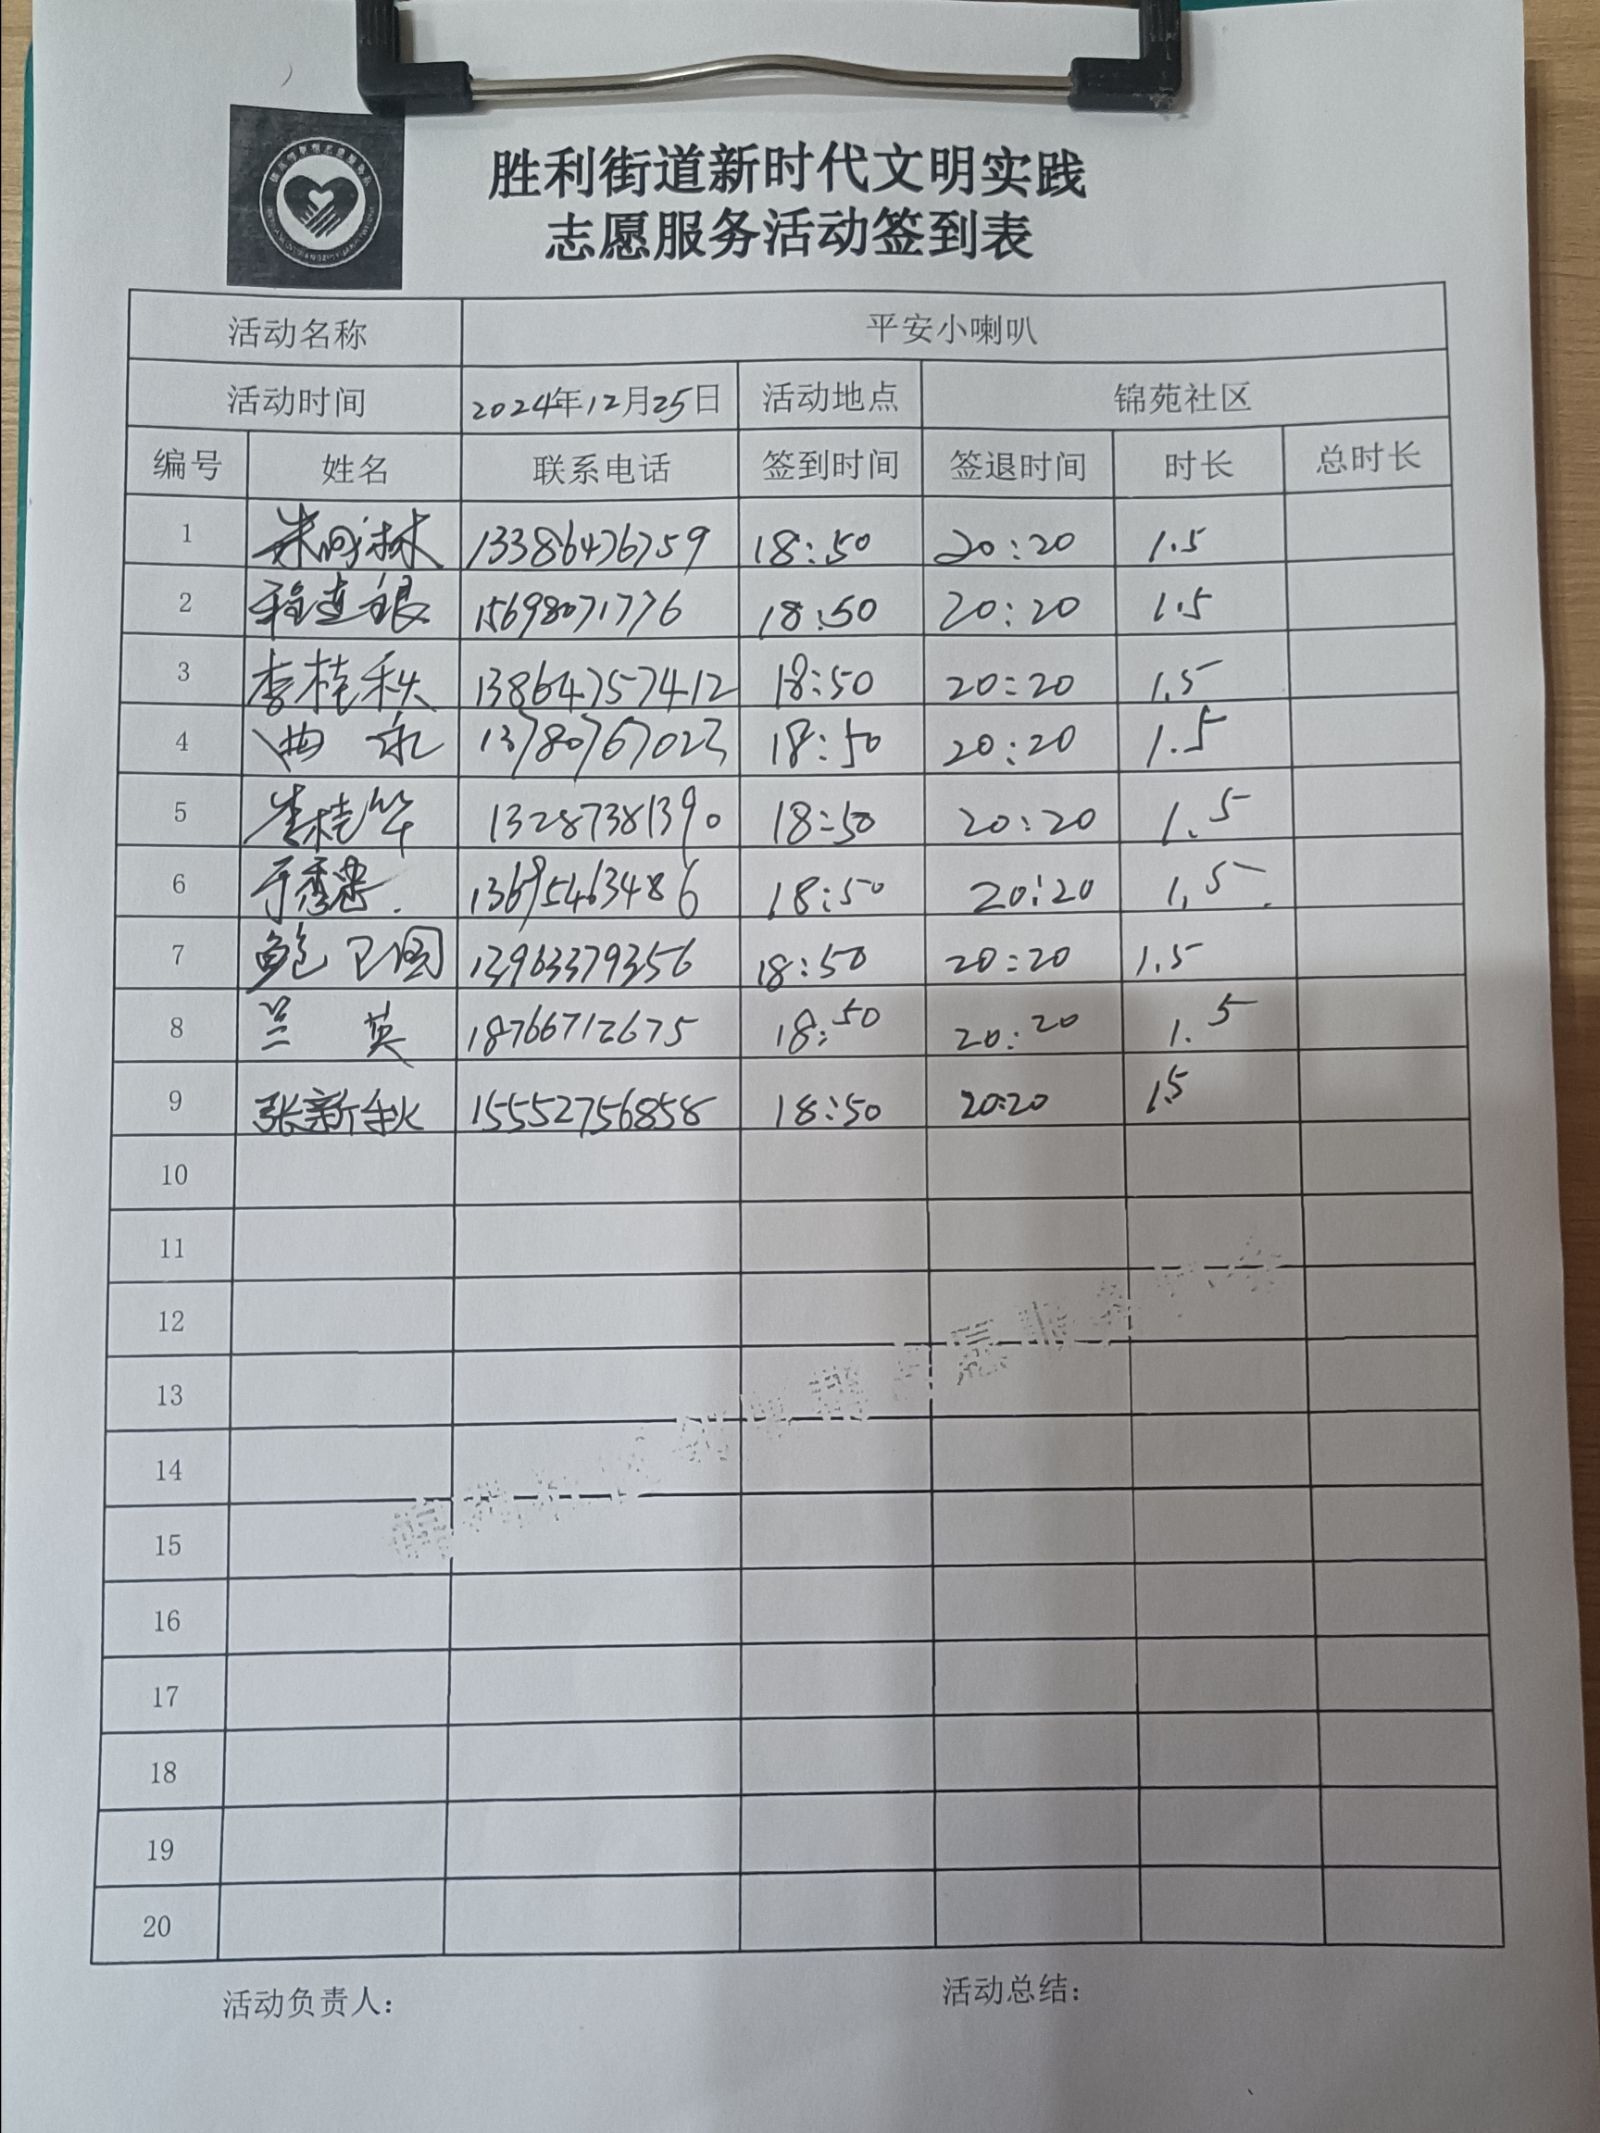 胜利街道新时代文明实践
志愿服务活动签到表
活动名称 平安小喇叭
活动时间 2024年12月25日 活动地点 锦苑社区
编号 姓名 联系电话 签到时间 签退时间 时长 总时长
1 13386476759 18:50 20:20 1.5
2 程连银 15698071776 18:50 20:20 1.5
3 李桂秋 13864757412 18:50 20:20 1.5
4 曲永 13780767023 18:50 20:20 1.5
5 李桂华 13287381390 18:50 20:20 1.5
6 于秀忠 13695463486 18:50 20:20 1.5
7 鲍卫国 13963379356 18:50 20:20 1.5
8 兰英 18766712675 18:50 20:20 1.5
9 张新秋 15552756858 18:50 20:20 1.5
10
11
12
13
14
15
16
17
18
19
20
活动负责人： 活动总结：